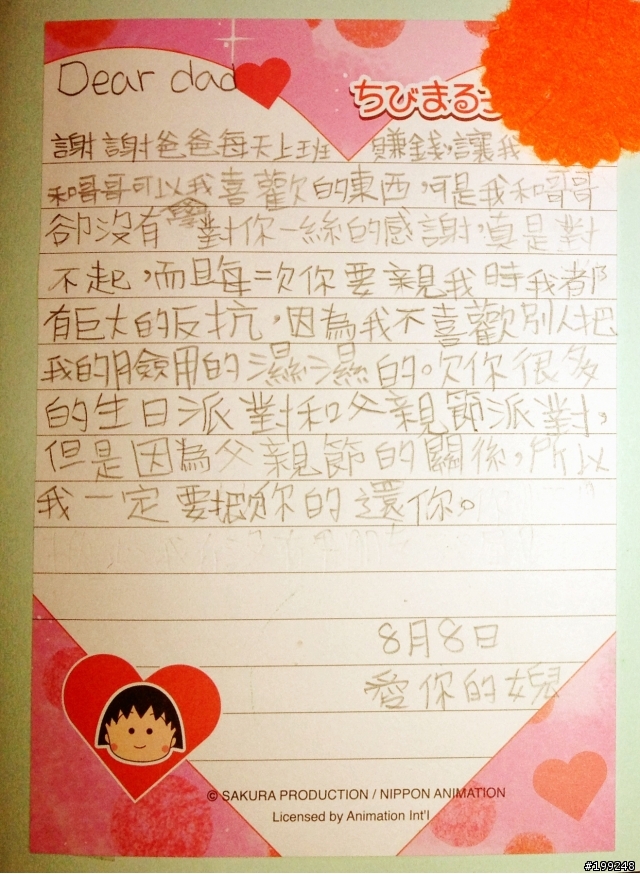 Dear dad
ちびまる
謝謝爸爸每天上班 賺錢,讓我
和哥哥可以我喜歡的東西,可是我和哥哥
卻沒有對你一絲的感謝,真是對
不起,而且每次你要親我時我都
有巨大的反抗,因為我不喜歡別人把
我的臉用的濕濕的。欠你很多
的生日派對和父親節派對,
但是因為父親節的關係,所以
我一定要把你的還你。
8月8日
愛你的女兒
© SAKURA PRODUCTION / NIPPON ANIMATION
Licensed by Animation Int'l
#199248